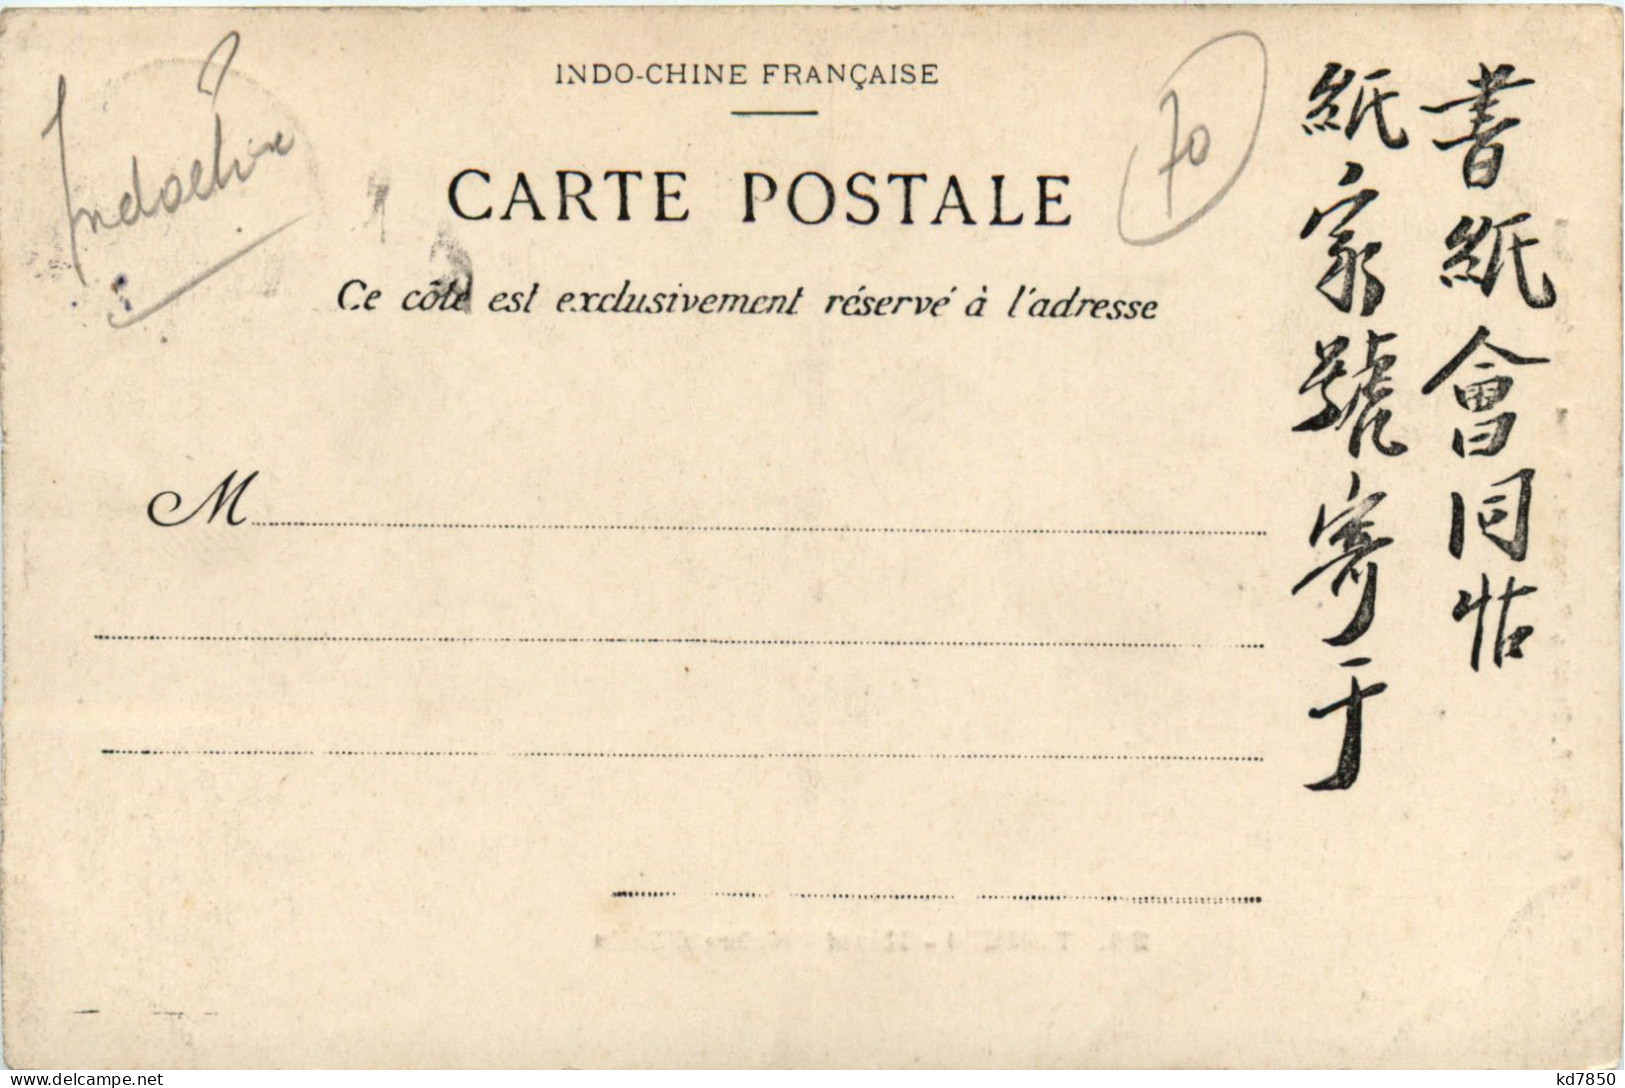 Indochine
INDO-CHINE FRANÇAISE
70
CARTE POSTALE
Ce côté est exclusivement réservé à l'adresse
M
書紙會同帖
紙家號寄于
kd7850